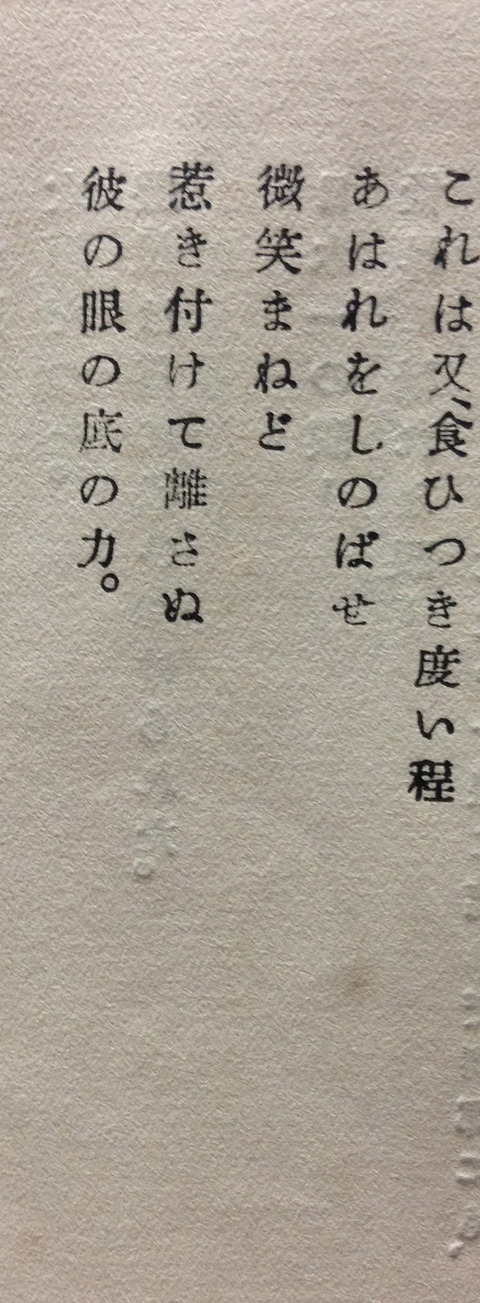 これは又、食ひつき度い程
あはれをしのばせ
微笑まねど
惹き付けて離さぬ
彼の眼の底の力。